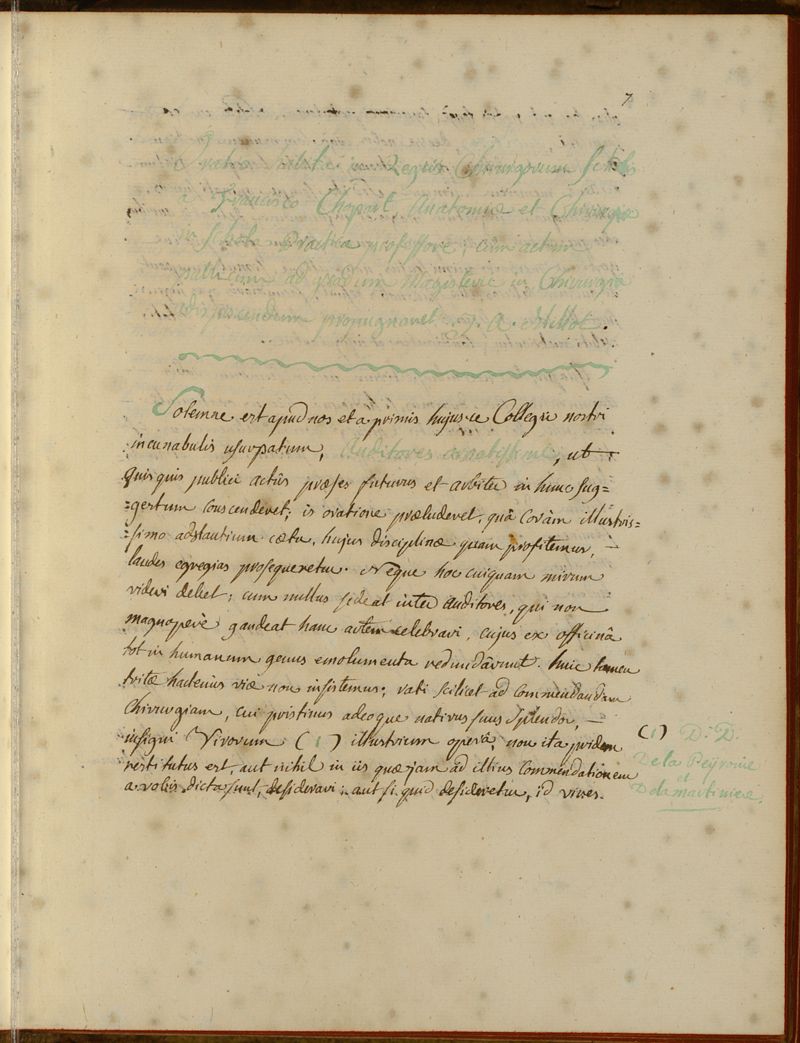 7
Oratio habita in Regiis Chirurgorum Scholis
a Francisco Chopart, Anatomiæ et Chirurgiæ
in Schola Practica professore, cum actum
publicum ad gradum Magisterii in Chirurgia
adipiscendum propugnaret J. A. Millot.
Solemne est apud nos et à primis hujusce Collegii nostri
incunabulis usurpatum, Auditores ornatissimi, ut
quisquis publici actûs præses futurus et arbiter in hunc sug=
=gestum conscenderet; is oratione præluderet, quâ coràm illustris=
=simo adstantium cœtu, hujus disciplinæ quam profitemur, –
laudes egregias prosequeretur. Neque hoc cuiquam mirum
videri debet; cum nullus sideat inter Auditores, qui non
magnoperè gaudeat hanc artem celebrari, cujus ex officinâ
tot in humanum genus emolumenta redundârunt. huic tamen
tritæ hactenus viæ non insistemus; rati scilicet ad commendandam
Chirurgiam, cui pristinus adeoque nativus suus splendor, –
insigni Virorum (1) illustrium operâ, non ita pridem
restitutus est, aut nihil in iis quæ jam ad illius commendationem
a vobis dicta sunt, desiderari; aut si quid desideretur, id vires.
(1) D. D.
De la Peyronie
et
De la martiniere.